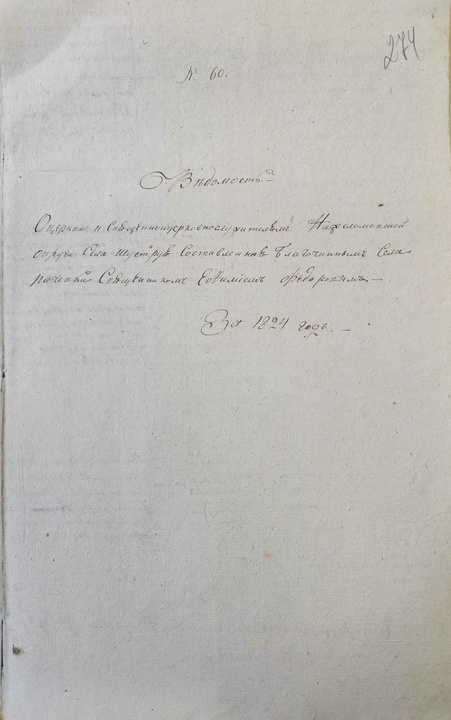 274
№ 60.
Вѣдомость
О церкве и Священноицерковнослужителяхъ Наровчатской
округи Села Шуструв Составленная Благочиннымъ Села
Священникомъ Евѳиміемъ Ѳедоровымъ
За 1824 годъ.